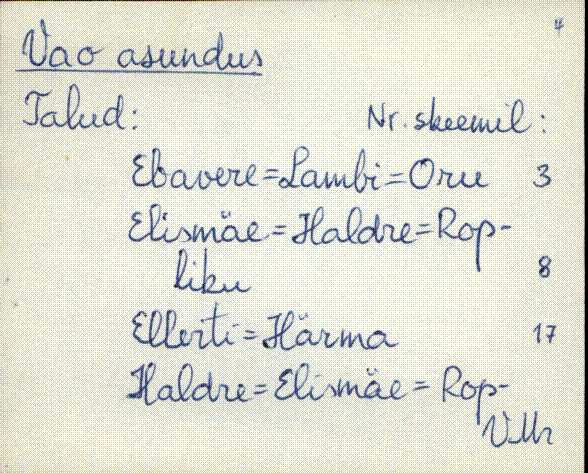 4
Vao asundus
Talud: Nr. skeemil:
Ebavere=Lambi=Oru 3
Elismäe=Haldre=Rop-
liku 8
Ellerti=Härma 17
Haldre=Elismäe=Rop-